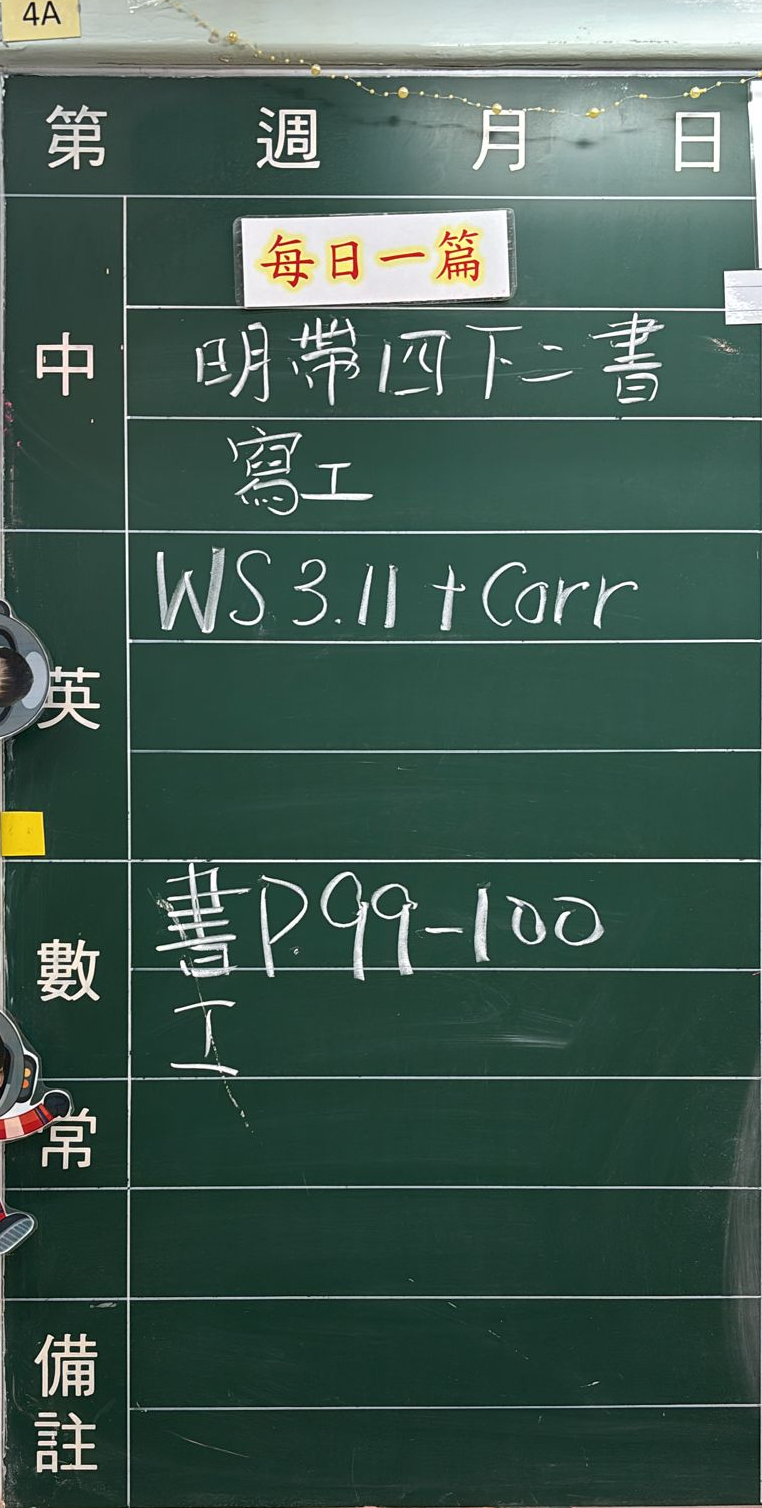 4A
第 週 月 日
中
每日一篇
明帶四下二書
寫工
英
WS 3.11 + Corr
數
書P.99-100
工
常
備註